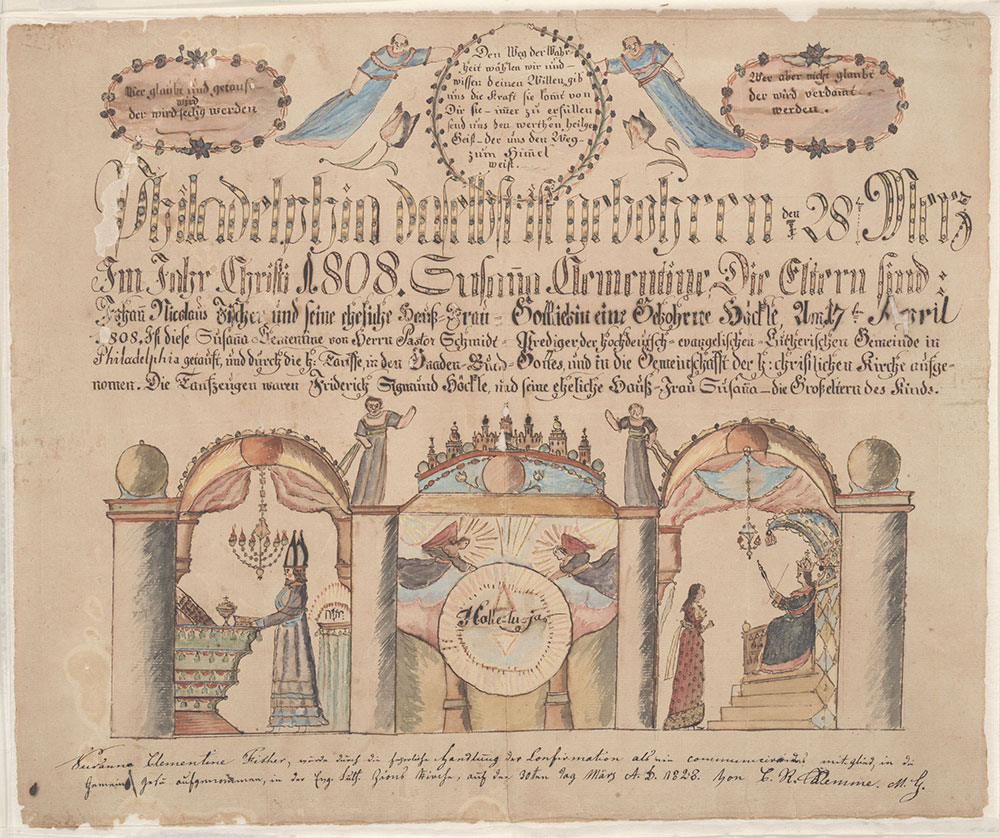 Wer glaubt und getauft
wird
der wird seelig werden
Den Weg der Wahr-
heit wählen wir und
wissen deinen Willen, gib
uns die Kraft sie komt von
Dir sie immer zu erfüllen
send uns den werthen heilgen
Geist der uns den Weg
zum Himmel
weist.
Wer aber nicht glaubt
der wird verdamt
werden.
Philadelphia daselbst ist gebohren den 28t Merz
Im Jahr Christi 1808. Susaña Clementine Die Eltern sind
Johan Nicolaus und seine eheliche Hauß-Frau Gottliebin eine Gebohrne Höckle Am 17ten April
1808. Ist diese Susaña Clementine von Herrn Pastor Schmidt Prediger der hochdeutsch-evangelischen Lutherischen Gemeinde in
Philadelphia getauft, und durch die h: Tauffe in den Gnaden-Bund Gottes, und in die Gemeinschafft der h: christlichen Kirche aufge-
nomen. Die Taufzeugen waren Friderich Sigmund Höckle, und seine eheliche Hauß-Frau Susaña die Großeltern des Kinds.
Halle-lu-ja
Susanna Clementine Fisher, wurde durch die Handlung der Confirmation als ein mitglied, in die
Gemeine Jesu aufgenommen, in der Evg. Luth. Zions Kirche, auf den 30ten tag März A.D. 1828. Von C. R. Demme.